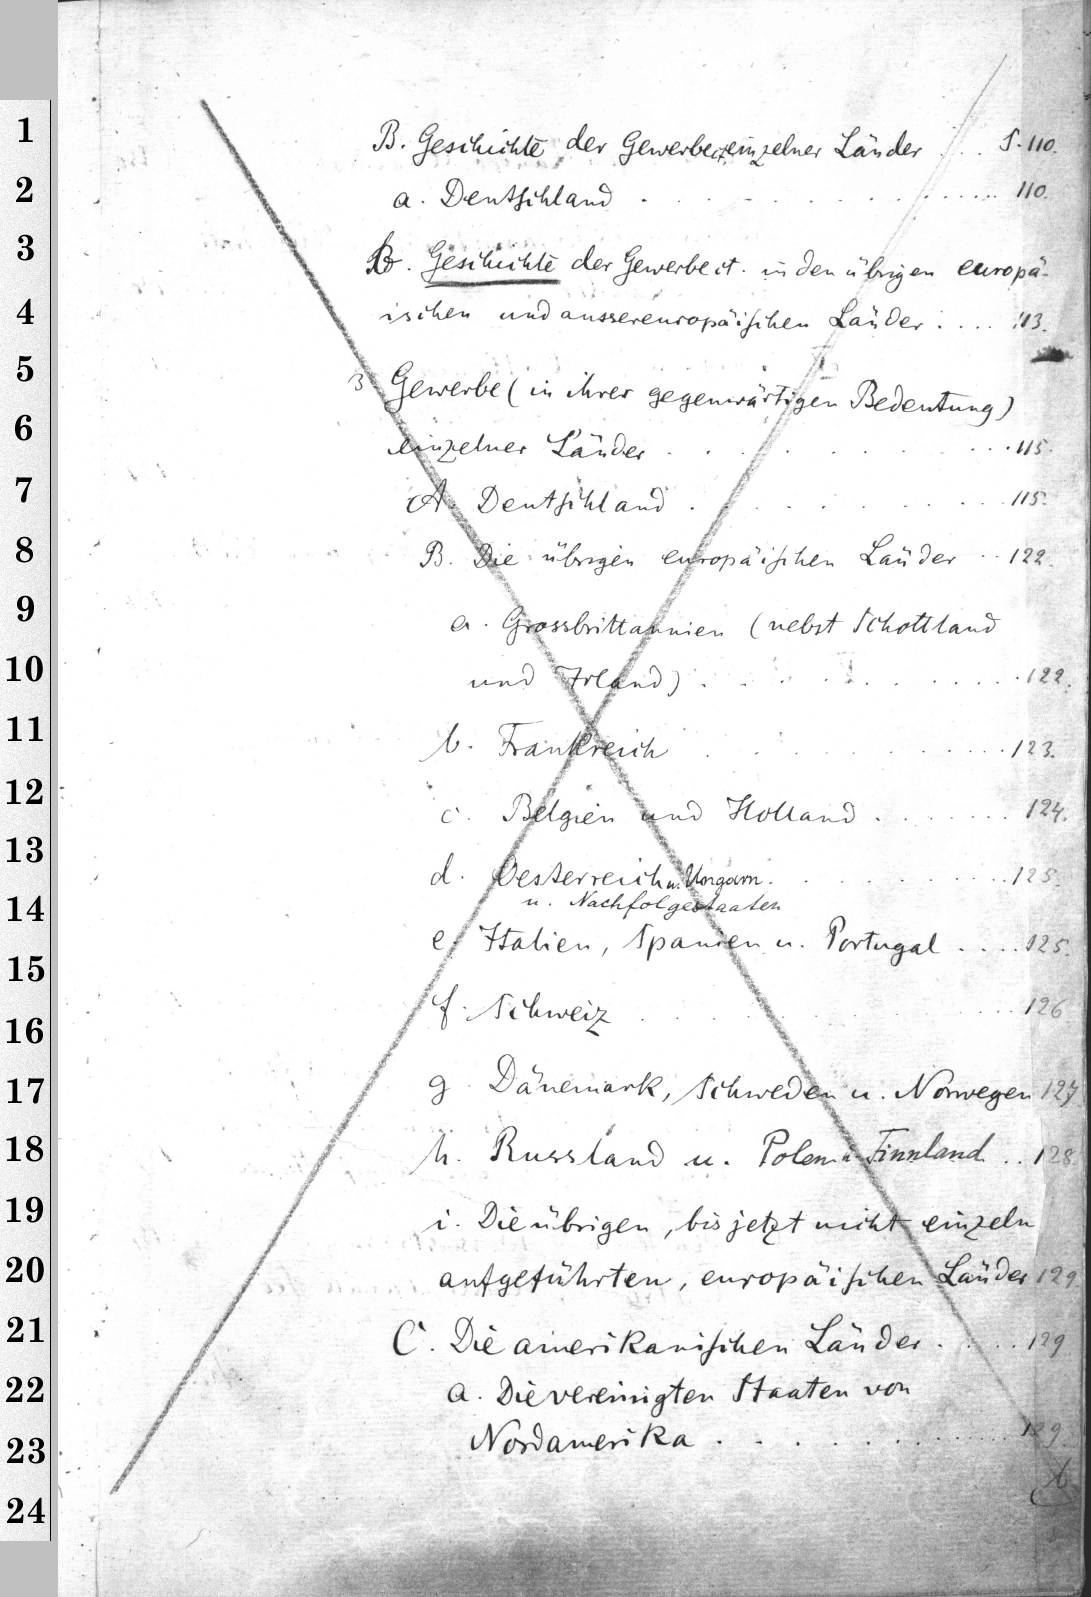 B. Geschichte der Gewerbe etc. einzelner Länder ... S. 110.
a. Deutschland . . . . . . . . . . . . . 110.
b. Geschichte der Gewerbe ct. in den übrigen europä-
ischen und aussereuropäischen Länder . . . . 113.
3. Gewerbe (in ihrer gegenwärtigen Bedeutung)
einzelner Länder . . . . . . . . . . 115.
A. Deutschland . . . . . . . . . . 115.
B. Die übrigen europäischen Länder .. 122.
a. Grossbrittannien (nebst Schottland
und Irland) . . . . . . . . . . 122.
b. Frankreich . . . . . . . . . . 123.
c. Belgien und Holland . . . . . . . 124.
d. Oesterreich u. Ungarn . . . . . . . . 125.
u. Nachfolgestaaten
e. Italien, Spanien u. Portugal . . . . 125.
f. Schweiz . . . . . . . . . . 126
g. Dänemark, Schweden u. Norwegen 127
h. Russland u. Polen u. Finnland .. 128
i. Die übrigen, bis jetzt nicht einzeln
aufgeführten, europäischen Länder 129
C. Die amerikanischen Länder . . . . . 129
a. Die vereinigten Staaten von
Nordamerika . . . . . . . . . . 129.
b
1
2
3
4
5
6
7
8
9
10
11
12
13
14
15
16
17
18
19
20
21
22
23
24